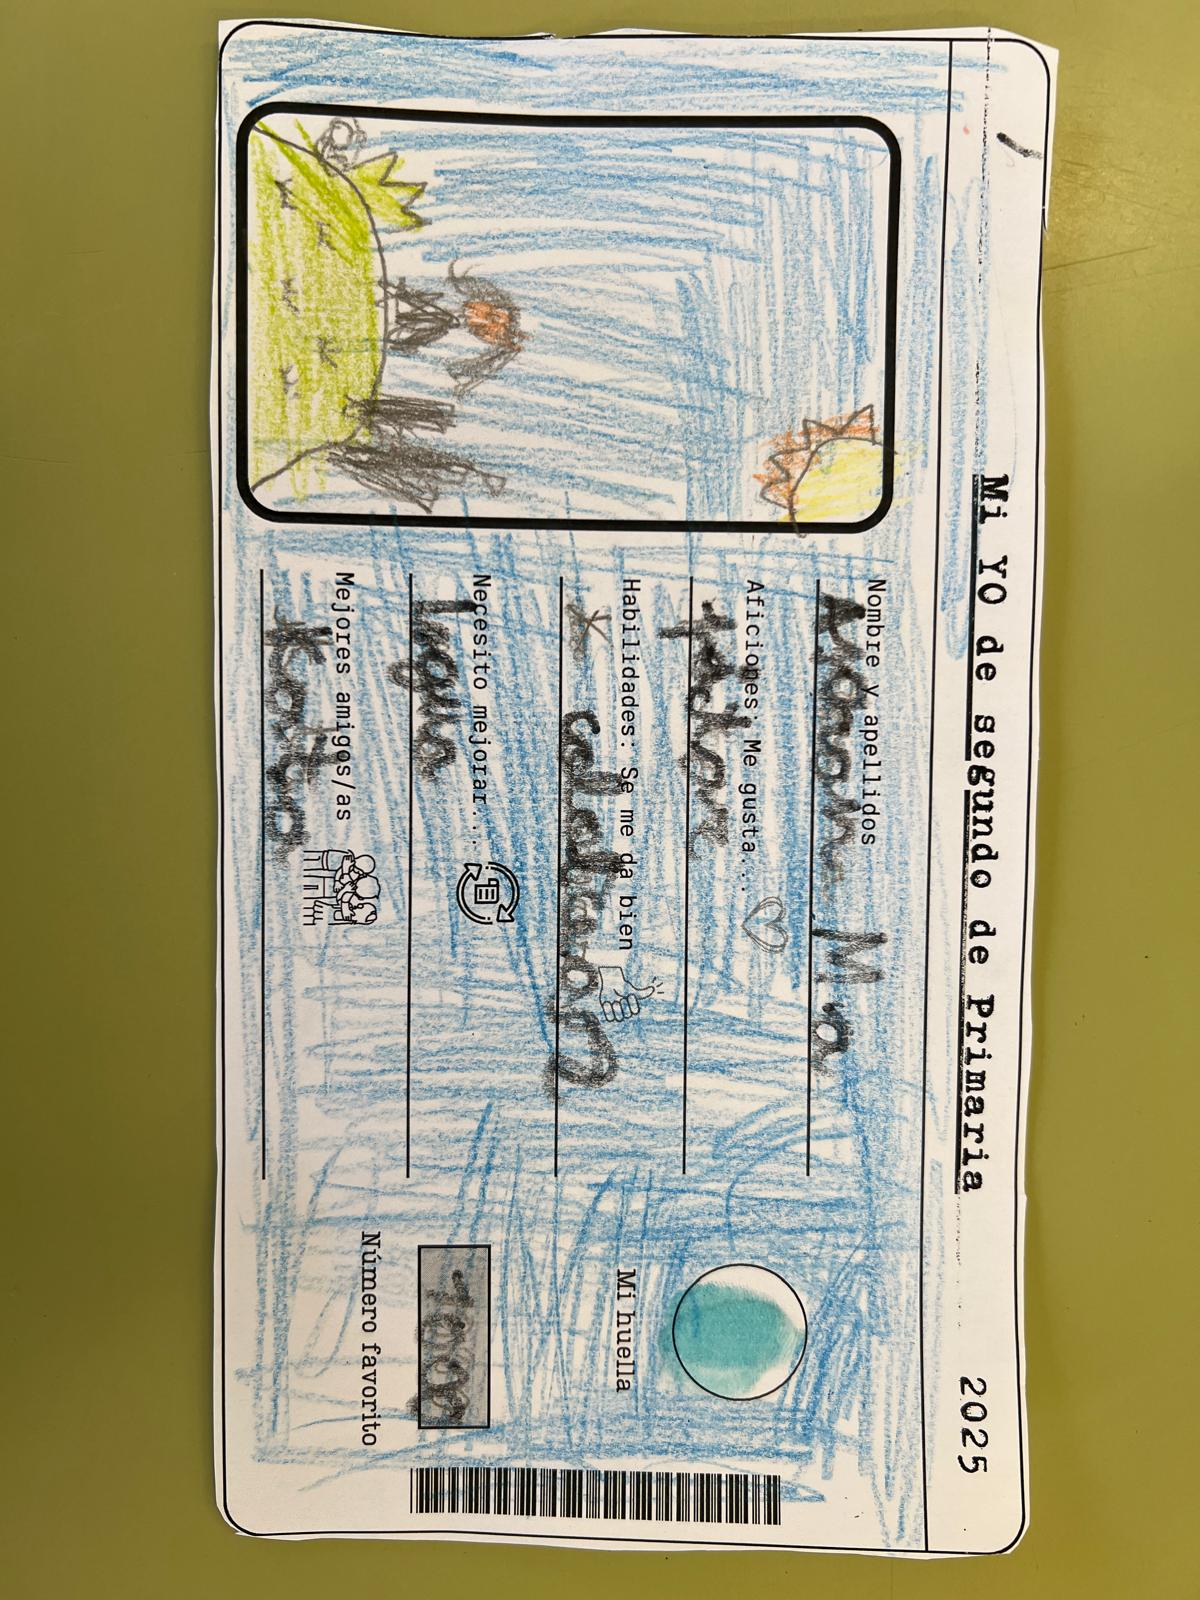 Mi YO de segundo de Primaria 2025
Nombre y apellidos
Aficiones: Me gusta...
pitar
Habilidades: Se me da bien
Necesito mejorar...
legua
Mejores amigos/as
Mi huella
1000
Número favorito